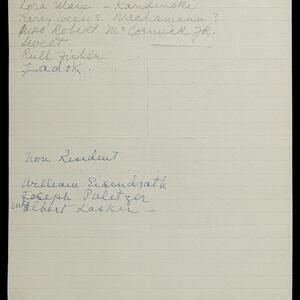 Lora Marx - Kandinski
Harry Weese? Wachsmann?
Mrs Robert McCormick Jr.
Sweet
Ruth Fisher
Zadok.
Non Resident
William Eisendrath
Joseph Pulitzer
Mrs Albert Lasker -